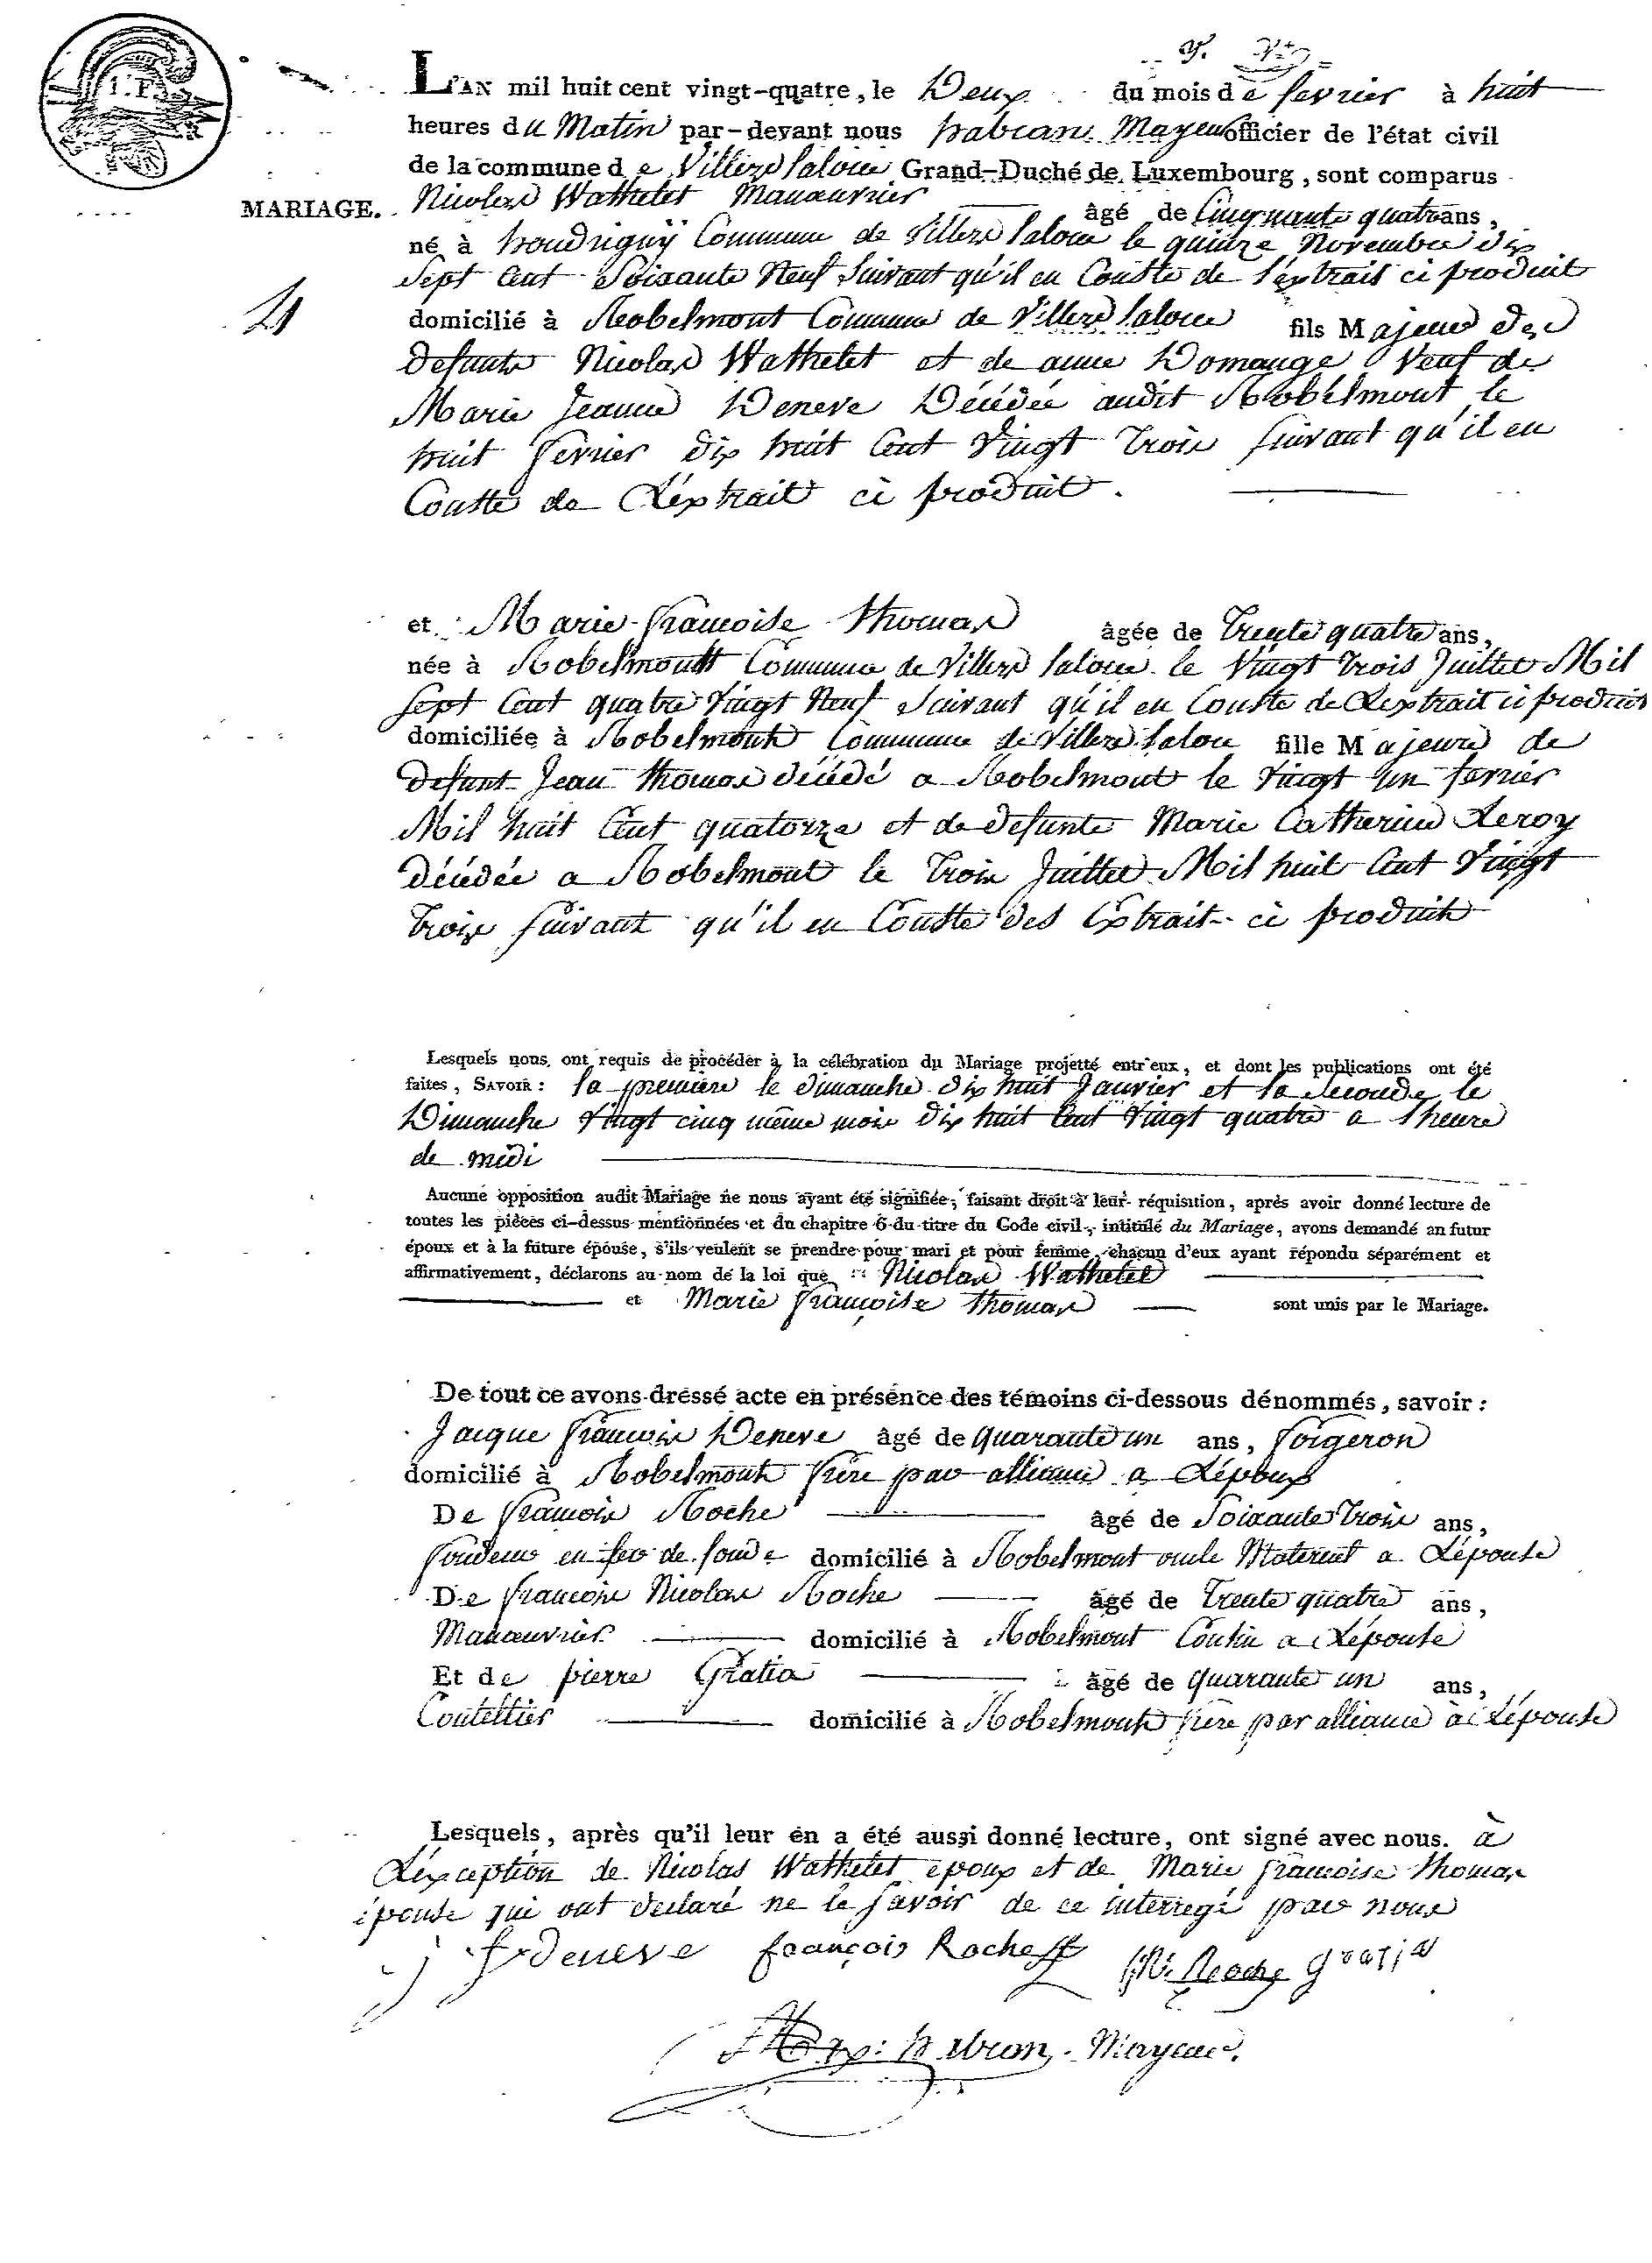 1. F.
L'AN mil huit cent vingt-quatre, le Deux du mois de fevrier à huit
heures du Matin par-devant nous habran Mayeur officier de l'état civil
de la commune de Villers la loue Grand-Duché de Luxembourg, sont comparus
MARIAGE. Nicolas Wathelet Manœuvrier âgé de Cinquante quatre ans,
né à houdrignÿ Commune de Villers la loue le quinze Novembre dix
Sept Cent Soixante Neuf Suivant qu'il en Conste de l'extrait ci produit
4
domicilié à Robelmont Commune de Villers la loue fils Majeur des
defunts Nicolas Wathelet et de anne Domange Veuf de
Marie Jeanne Deneve Décédée audit Robelmont le
huit fevrier dix huit Cent Vingt Trois suivant qu'il en
Conste de L'éxtrait ci produit.
et Marie françoise Thomas âgée de Trente quatre ans,
née à Robelmont Commune de Villers la loue le Vingt Trois Juillet Mil
Sept Cent quatre Vingt Neuf Suivant qu'il en Conste de Lextrait ci produit
domiciliée à Robelmont Commune de Villers la loue fille Majeure de
defunt Jean Thomas décédé a Robelmont le Vingt un fevrier
Mil huit Cent quatorze et de defunte Marie Catherine Leroy
décédée a Robelmont le Trois Juillet Mil huit Cent Vingt
Trois suivant qu'il en Conste des Extrait ci produit
Lesquels nous ont requis de procéder à la célébration du Mariage projetté entr'eux, et dont les publications ont été
faites, SAVOIR : la premiere le dimanche dix huit Janvier et la Seconde le
Dimanche Vingt cinq même mois dix huit Cent Vingt quatre a l heure
de midi
Aucune opposition audit Mariage ne nous ayant été signifiée, faisant droit à leur réquisition, après avoir donné lecture de
toutes les pièces ci-dessus mentionnées et du chapitre 6 du titre du Code civil, intitulé du Mariage, avons demandé au futur
époux et à la future épouse, s'ils veulent se prendre pour mari et pour femme, chacun d'eux ayant répondu séparément et
affirmativement, déclarons au nom de la loi que Nicolas Wathelet
et Marie françoise Thomas sont unis par le Mariage.
De tout ce avons dressé acte en présence des témoins ci-dessous dénommés, savoir :
Jacque françois Deneve âgé de quarante un ans, forgeron
domicilié à Robelmont frère par alliance a Lépoux
De françois Roche âgé de Soixante Trois ans,
fondeur en fer de fonde domicilié à Robelmont oncle Maternel a Lépouse
De françois Nicolas Roche âgé de Trente quatre ans,
Manœuvrier domicilié à Robelmont Cousin a Lépouse
Et de pierre Gratia âgé de quarante un ans,
Coutellier domicilié à Robelmont frère par alliance à Lépouse
Lesquels, après qu'il leur en a été aussi donné lecture, ont signé avec nous. à
Léxception de Nicolas Wathelet époux et de Marie françoise Thomas
épouse qui ont declaré ne le savoir de ce interregé par nous
deneve françois Roche f N Roche gratia
habran Mayeur.